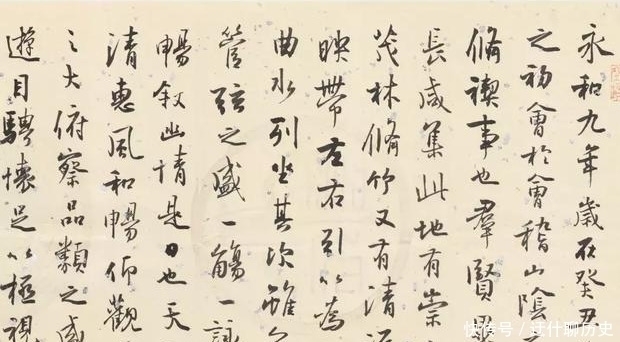 永和九年歲在癸丑
之初會於會稽山陰
脩禊事也羣賢畢
長咸集此地有崇
茂林脩竹又有清流
映帶左右引以為
曲水列坐其次雖無
管弦之盛一觴一詠
暢叙幽情是日也天
清惠風和暢仰觀
之大俯察品類之盛
遊目騁懷足以極視
快传号 / 迂什聊历史